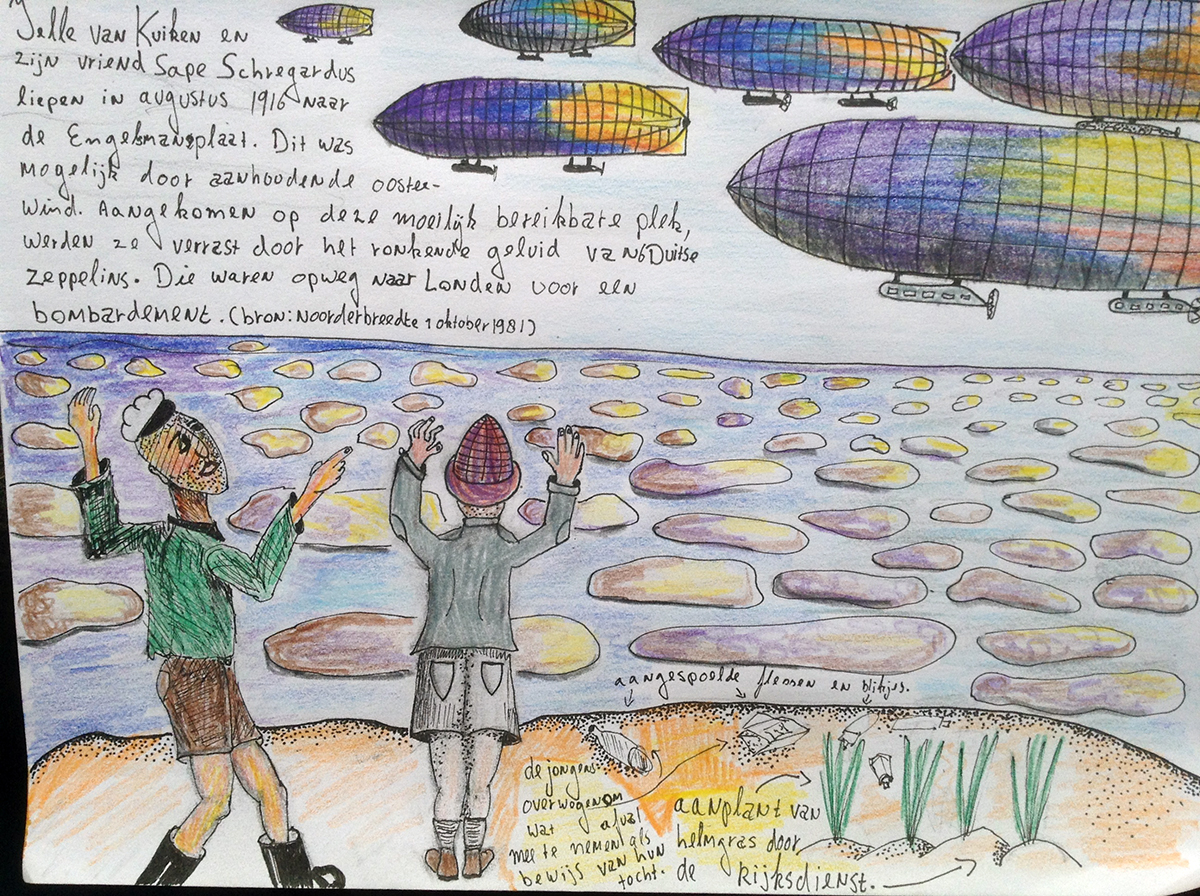 Jelle van Kuiken en
zijn vriend Sape Schregardus
liepen in augustus 1916 naar
de Engelsmansplaat. Dit was
mogelijk door aanhoudende ooste-
wind. Aangekomen op deze moeilijk bereikbare plek,
werden ze verrast door het ronkende geluid van 6 Duitse
zeppelins. Die waren opweg naar Londen voor een
bombardement. (bron: Noorderbreedte 1 oktober 1981)
aangespoelde flessen en blikjes.
de jongens
overwogen om
wat afval
mee te nemen als
bewijs van hun
tocht.
aanplant van
helmgras door
de Rijksdienst.